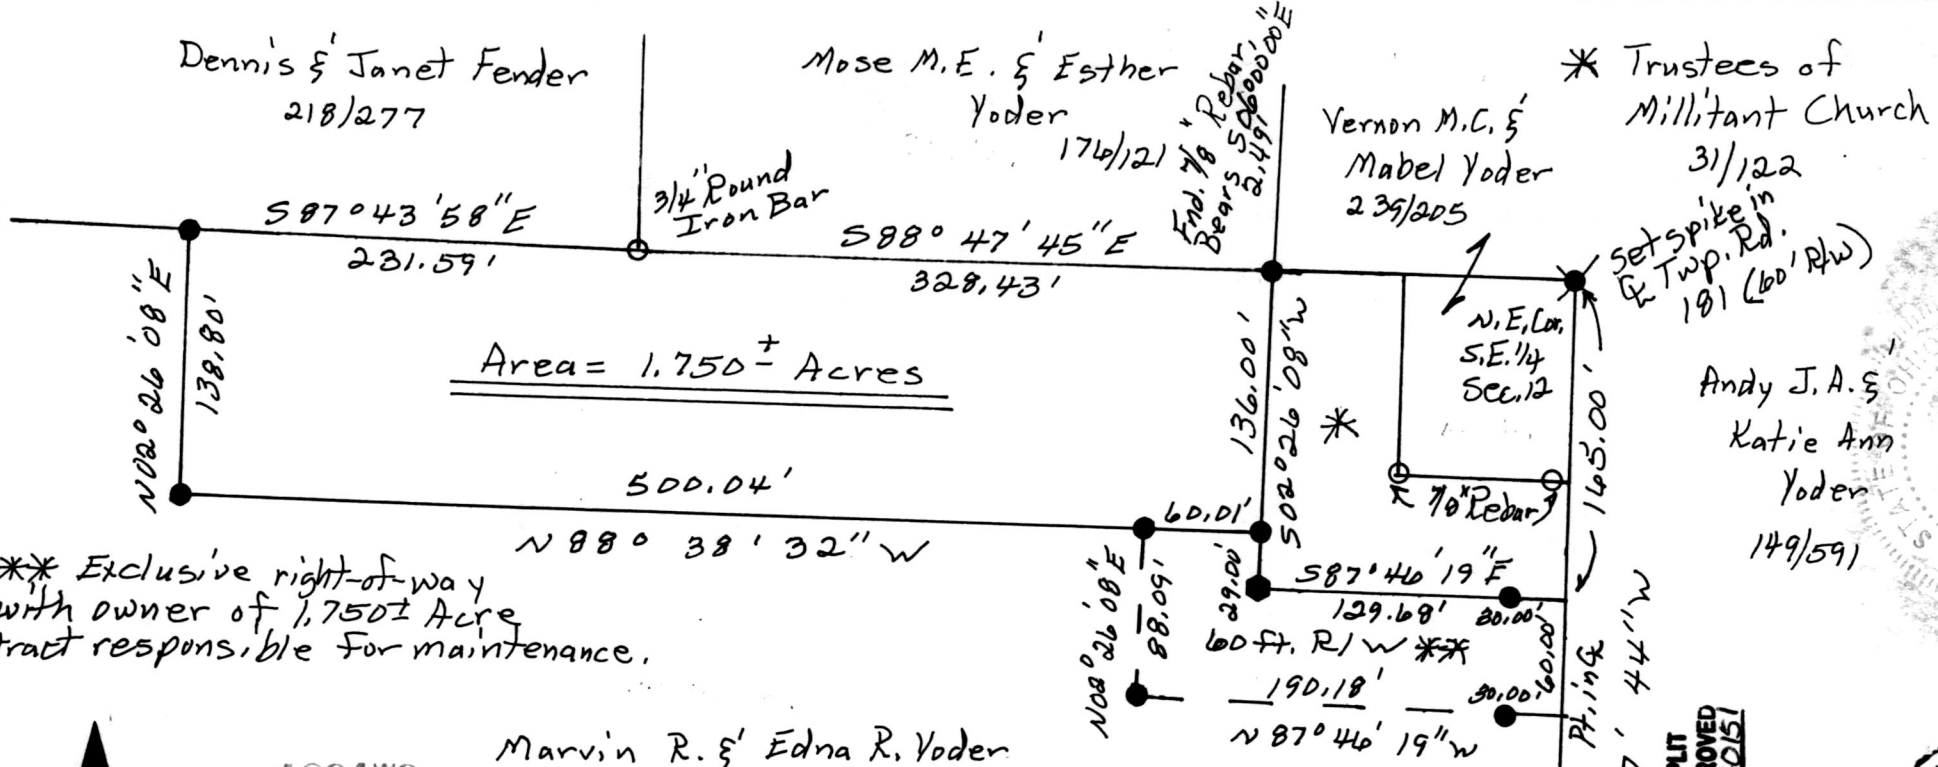 Dennis & Janet Fender
218/277
Mose M.E. & Esther
Yoder
176/121
Fnd. 7/8" Rebar
Bears S06°00'00"E
2.49'
Vernon M.C. &
Mabel Yoder
239/205
* Trustees of
Millitant Church
31/122
set spike in
℄ Twp. Rd.
181 (60' R/W)
3/4" Round
Iron Bar
S87°43'58"E
231.59'
S88°47'45"E
328.43'
N02°26'08"E
138.80'
Area = 1.750± Acres
136.00'
S02°26'08"W
*
N.E. Cor.
S.E. 1/4
Sec. 12
165.00'
Andy J.A. &
Katie Ann
Yoder
149/591
STATE OF
7/8" Rebar
500.04'
60.01'
N88°38'32"W
** Exclusive right-of-way
with owner of 1.750± Acre
tract responsible for maintenance.
N02°26'08"E
88.09'
29.00'
S87°46'19"E
129.68'
30.00'
60 ft. R/W **
60.00'
190.18'
30.00'
N87°46'19"W
Pt. in ℄
44"W
Marvin R. & Edna R. Yoder